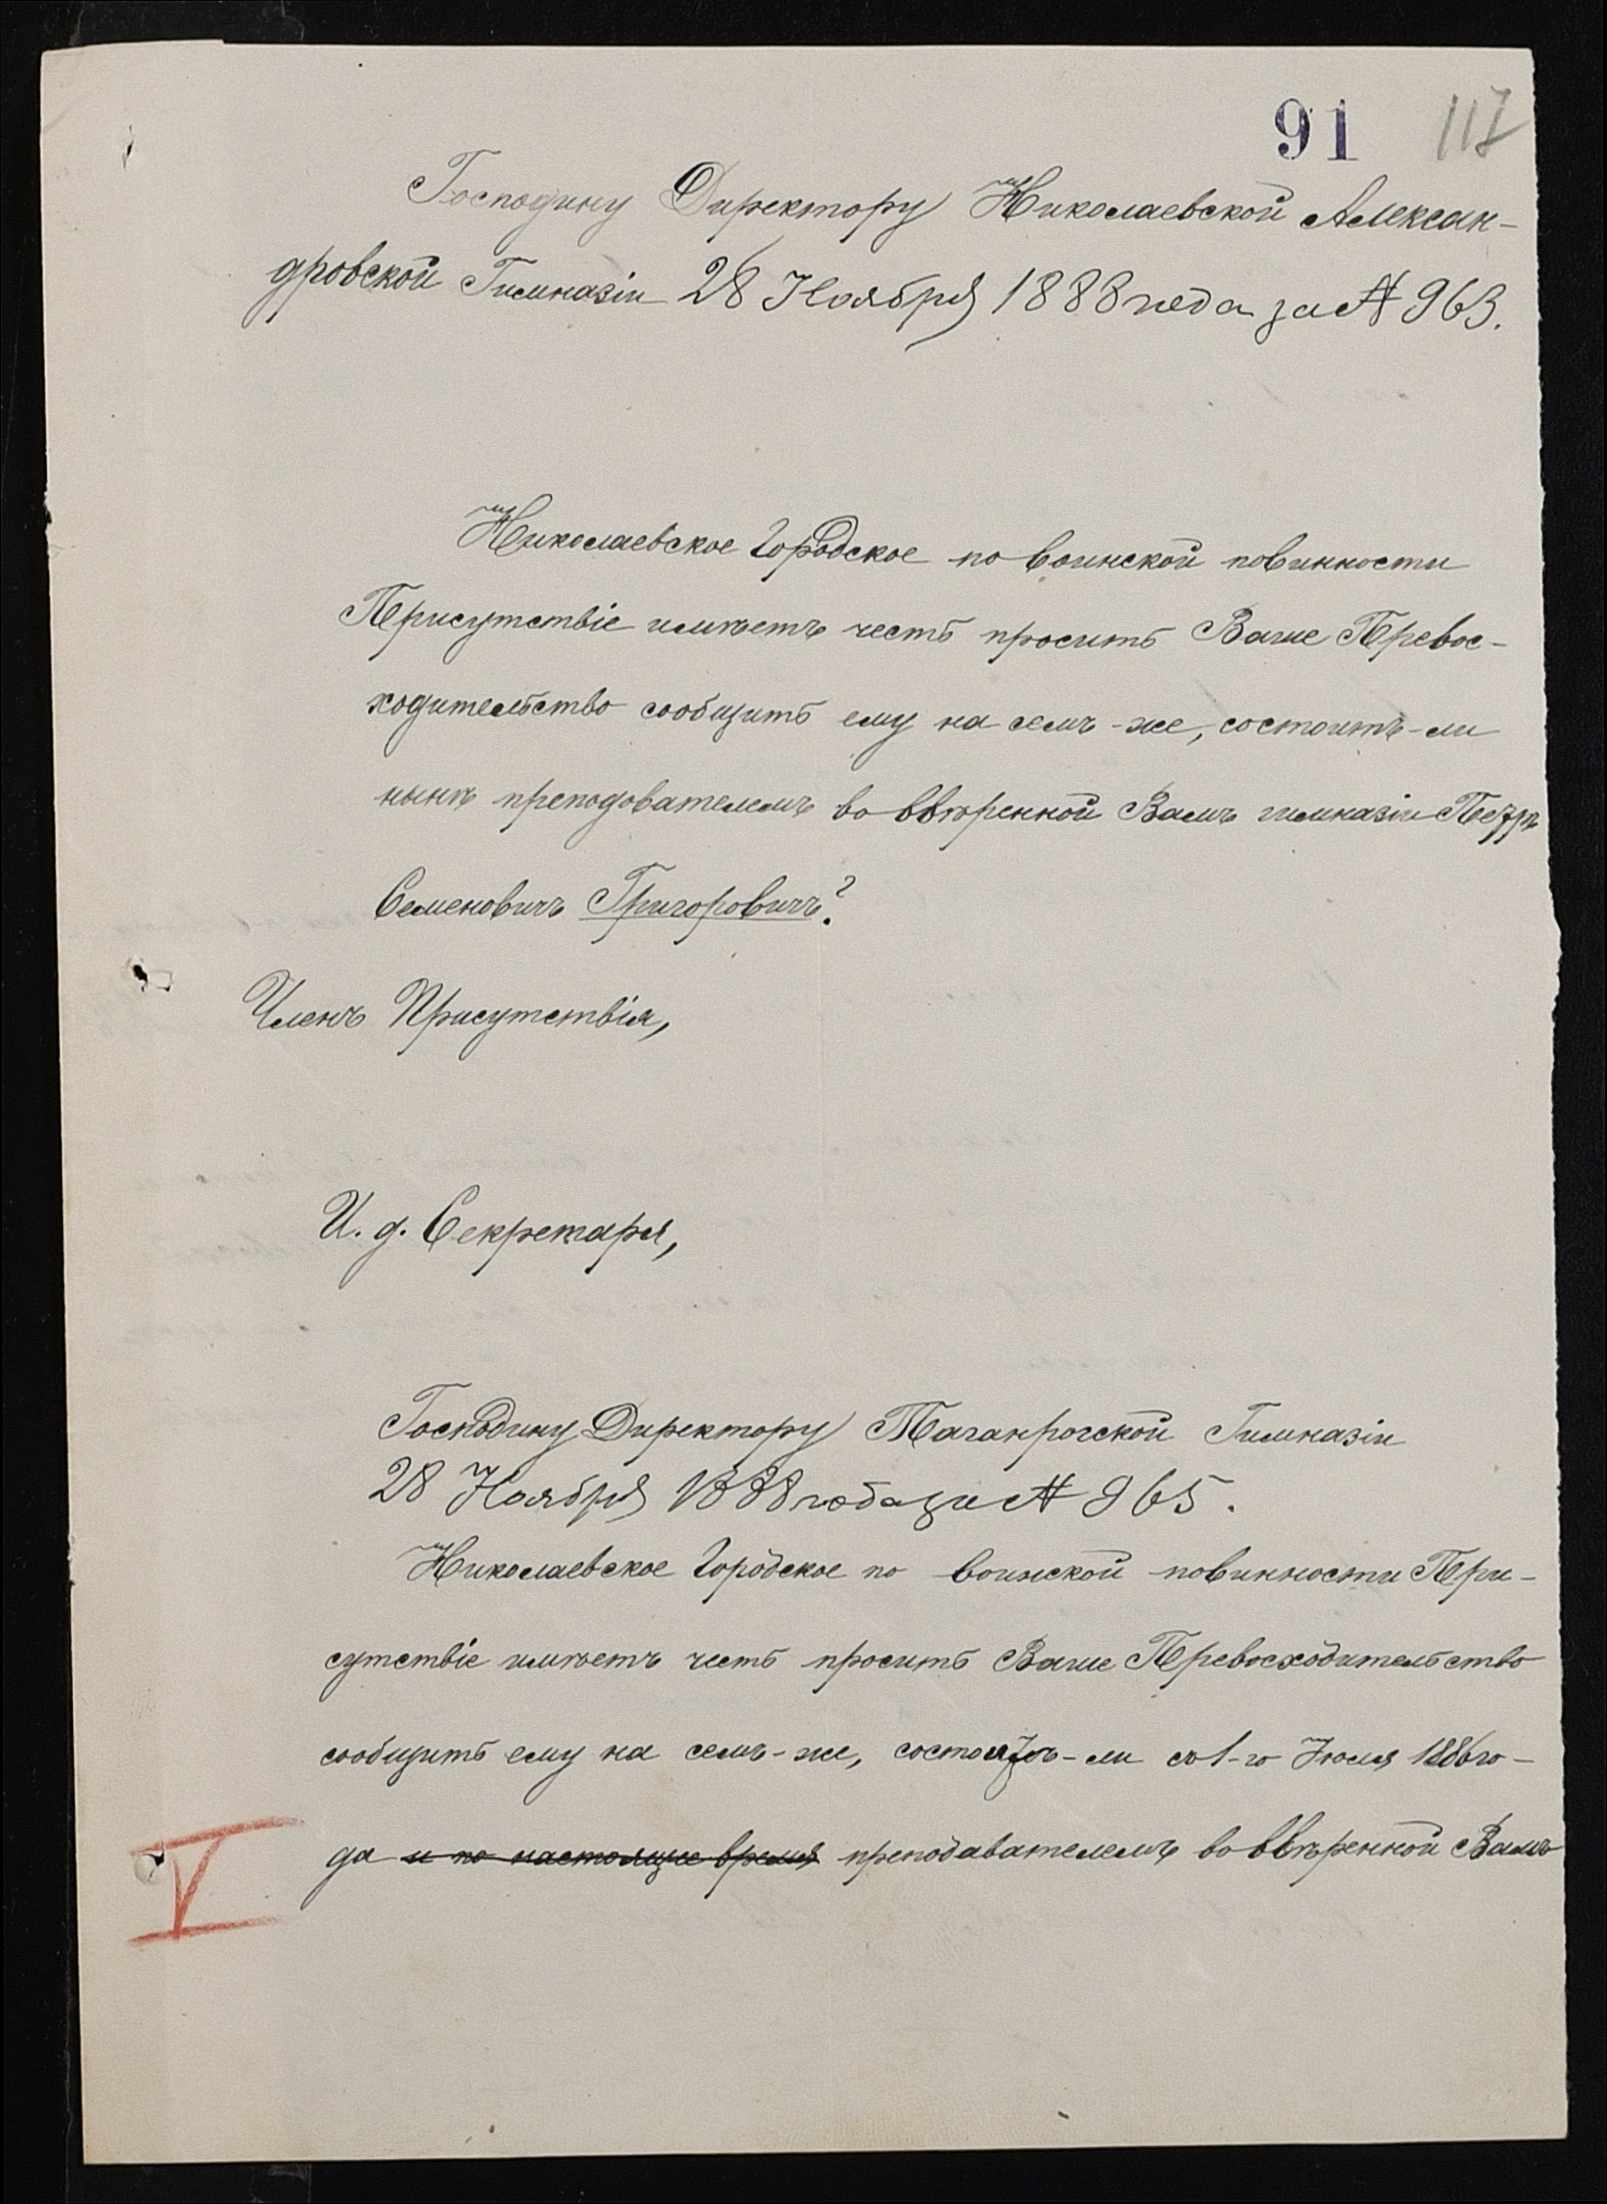 91 117
Господину Директору Николаевской Алексан-
дровской Гимназіи 28 Ноября 1888 года за № 963.
Николаевское Городское по воинской повинности
Присутствіе имѣетъ честь просить Ваше Превос-
ходительство сообщить ему на семъ-же, состоитъ-ли
нынѣ преподователемъ во ввѣренной Вамъ гимназіи Петръ
Семеновичъ Григоровичъ?
Членъ Присутствія,
И. д. Секретаря,
Господину Директору Таганрогской Гимназіи
28 Ноября 1888 года за № 965.
Николаевское Городское по воинской повинности При-
сутствіе имѣетъ честь просить Ваше Превосходительство
сообщить ему на семъ-же, состоитъ-ли съ 1-го Іюля 1886 го-
да и по настоящее время преподавателемъ во ввѣренной Вамъ
V